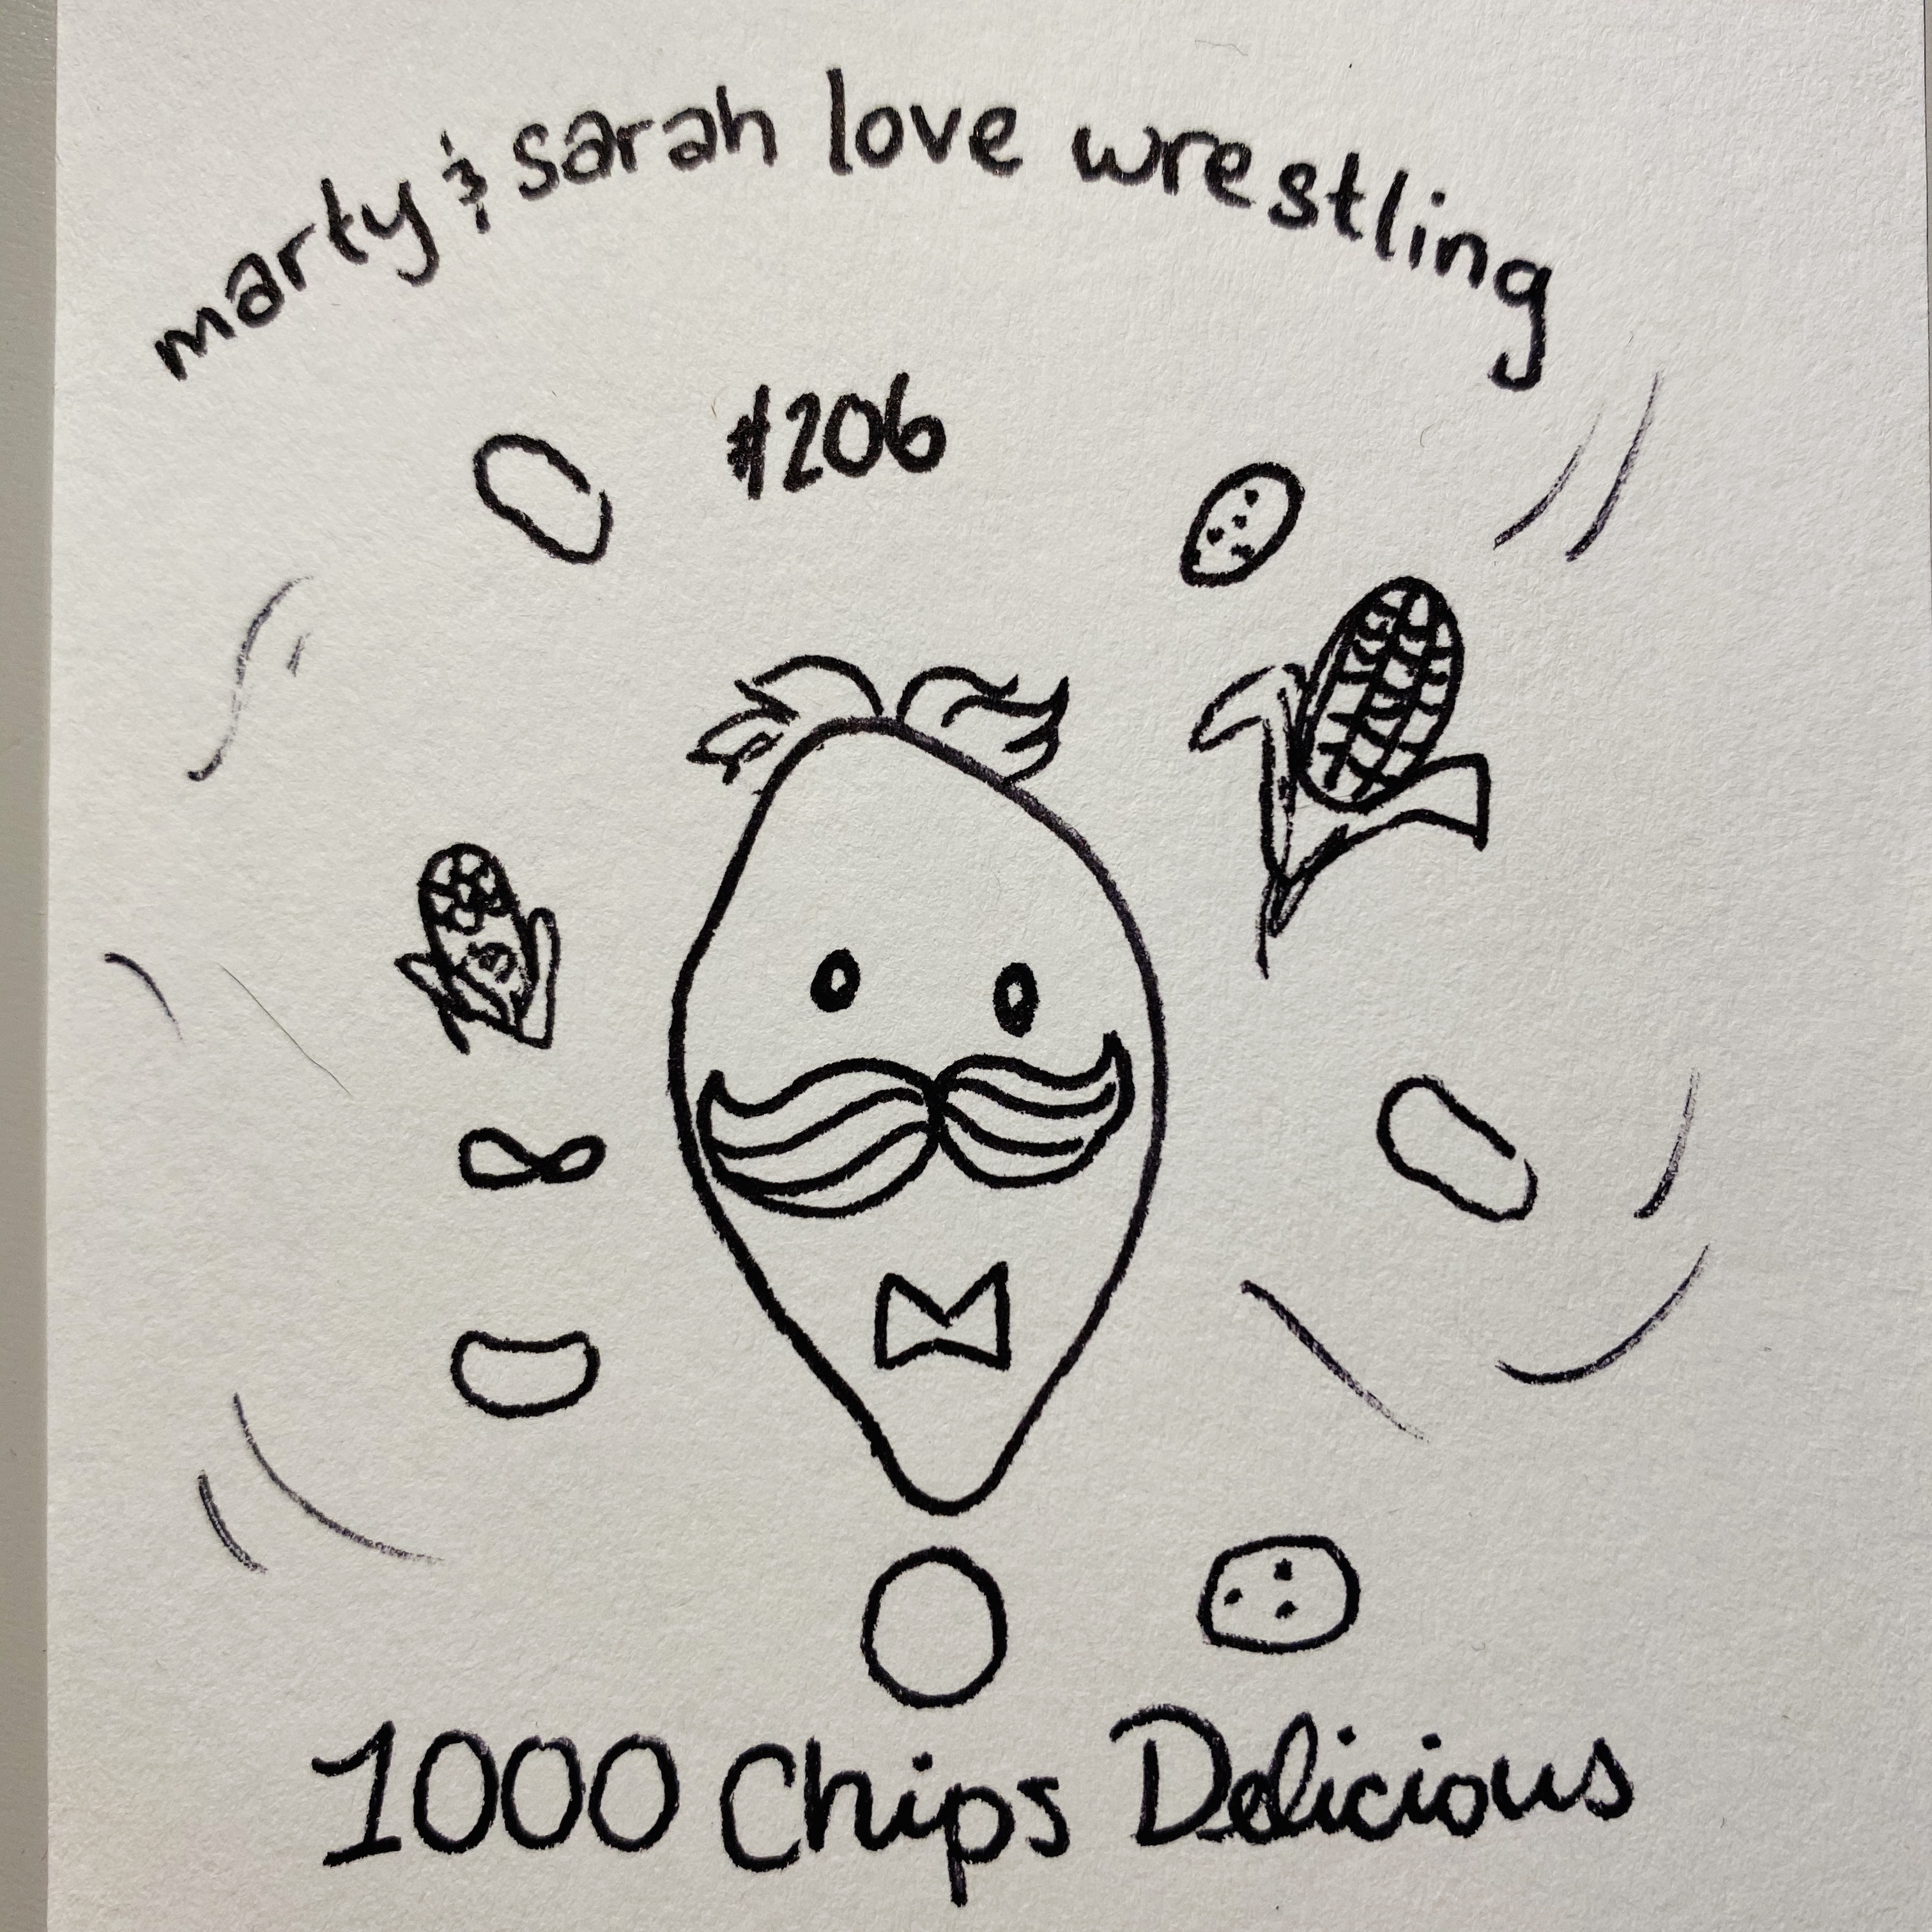 marty & sarah love wrestling
#206
1000 Chips Delicious